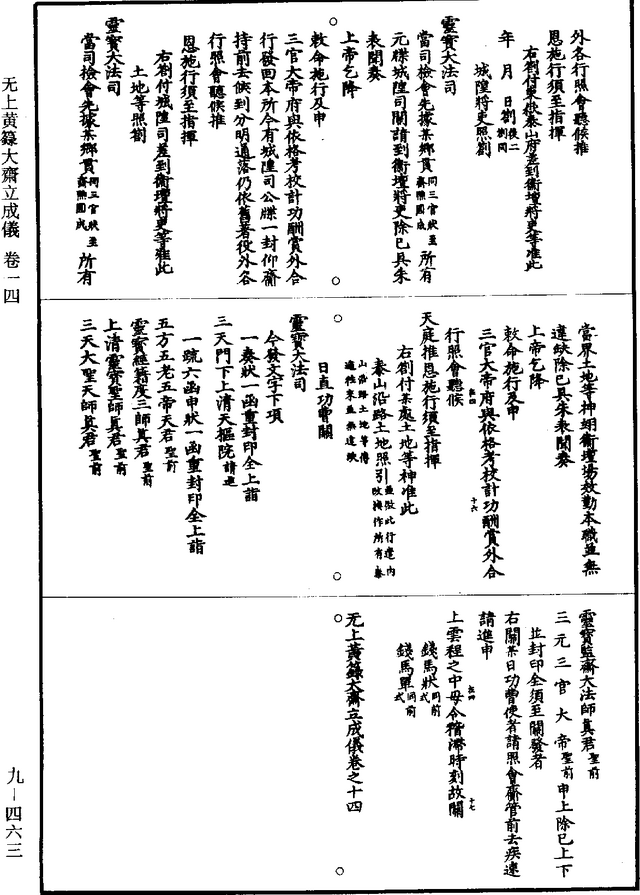 外各行照會聽候推
恩施行須至指揮
右劄付東嶽泰山府差到衛壇將吏等准此
年 月 日劄後二劄同
城隍將吏照劄
靈寶大法司
當司檢會先據某鄉貫同三官狀至齋職圓成所有
元牒城隍司關請到衛壇將吏除已具朱
表聞奏
上帝乞降
敕命施行及申
三官大帝府與依格考校計功酬賞外合
行發回本所今有城隍司公牒一封仰齋
持前去候到分明通落仍依舊著役外各
行照會聽候推
恩施行須至指揮
右劄付城隍司差到衛壇將吏等准此
土地等照劄
靈寶大法司
當司檢會先據某鄉貫同三官狀至齋職圓成所有
當界土地等神翊衛壇場效勤本職並無
違缺除已具朱表聞奏
上帝乞降
敕命施行及申
三官大帝府與依格考校計功酬賞外合
行照會聽候
天庭推恩施行須至指揮
右劄付某處土地等神准此
泰山沿路土地照引並倣此行遣內改換作所有泰山沿路土地等傳遞往來並無違缺
日直功曹關
靈寶大法司
今發文字下項
一奏狀一函重封印全上詣
三天門下上清天樞院請進
一疏六函申狀一函重封印全上詣
五方五老五帝天君聖前
靈寶經籍度三師真君聖前
上清靈寶聖師真君聖前
三天大聖天師真君聖前
靈寶監齋大法師真君聖前
三元三官大帝聖前申上除已上下
並封印全須至關發者
右關某日功曹使者請照會齋管前去疾速
請進申
上雲程之中毋令稽滯時刻故關
錢馬狀式同前
錢馬單式同前
无上黃籙大齋立成儀卷之十四
无上黃籙大齋立成儀 卷一四
九－四六三